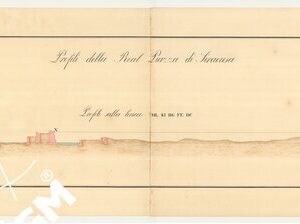 Profili della Real Piazza di Siracusa
Profili sulla linea ML KI HG FE DC
X